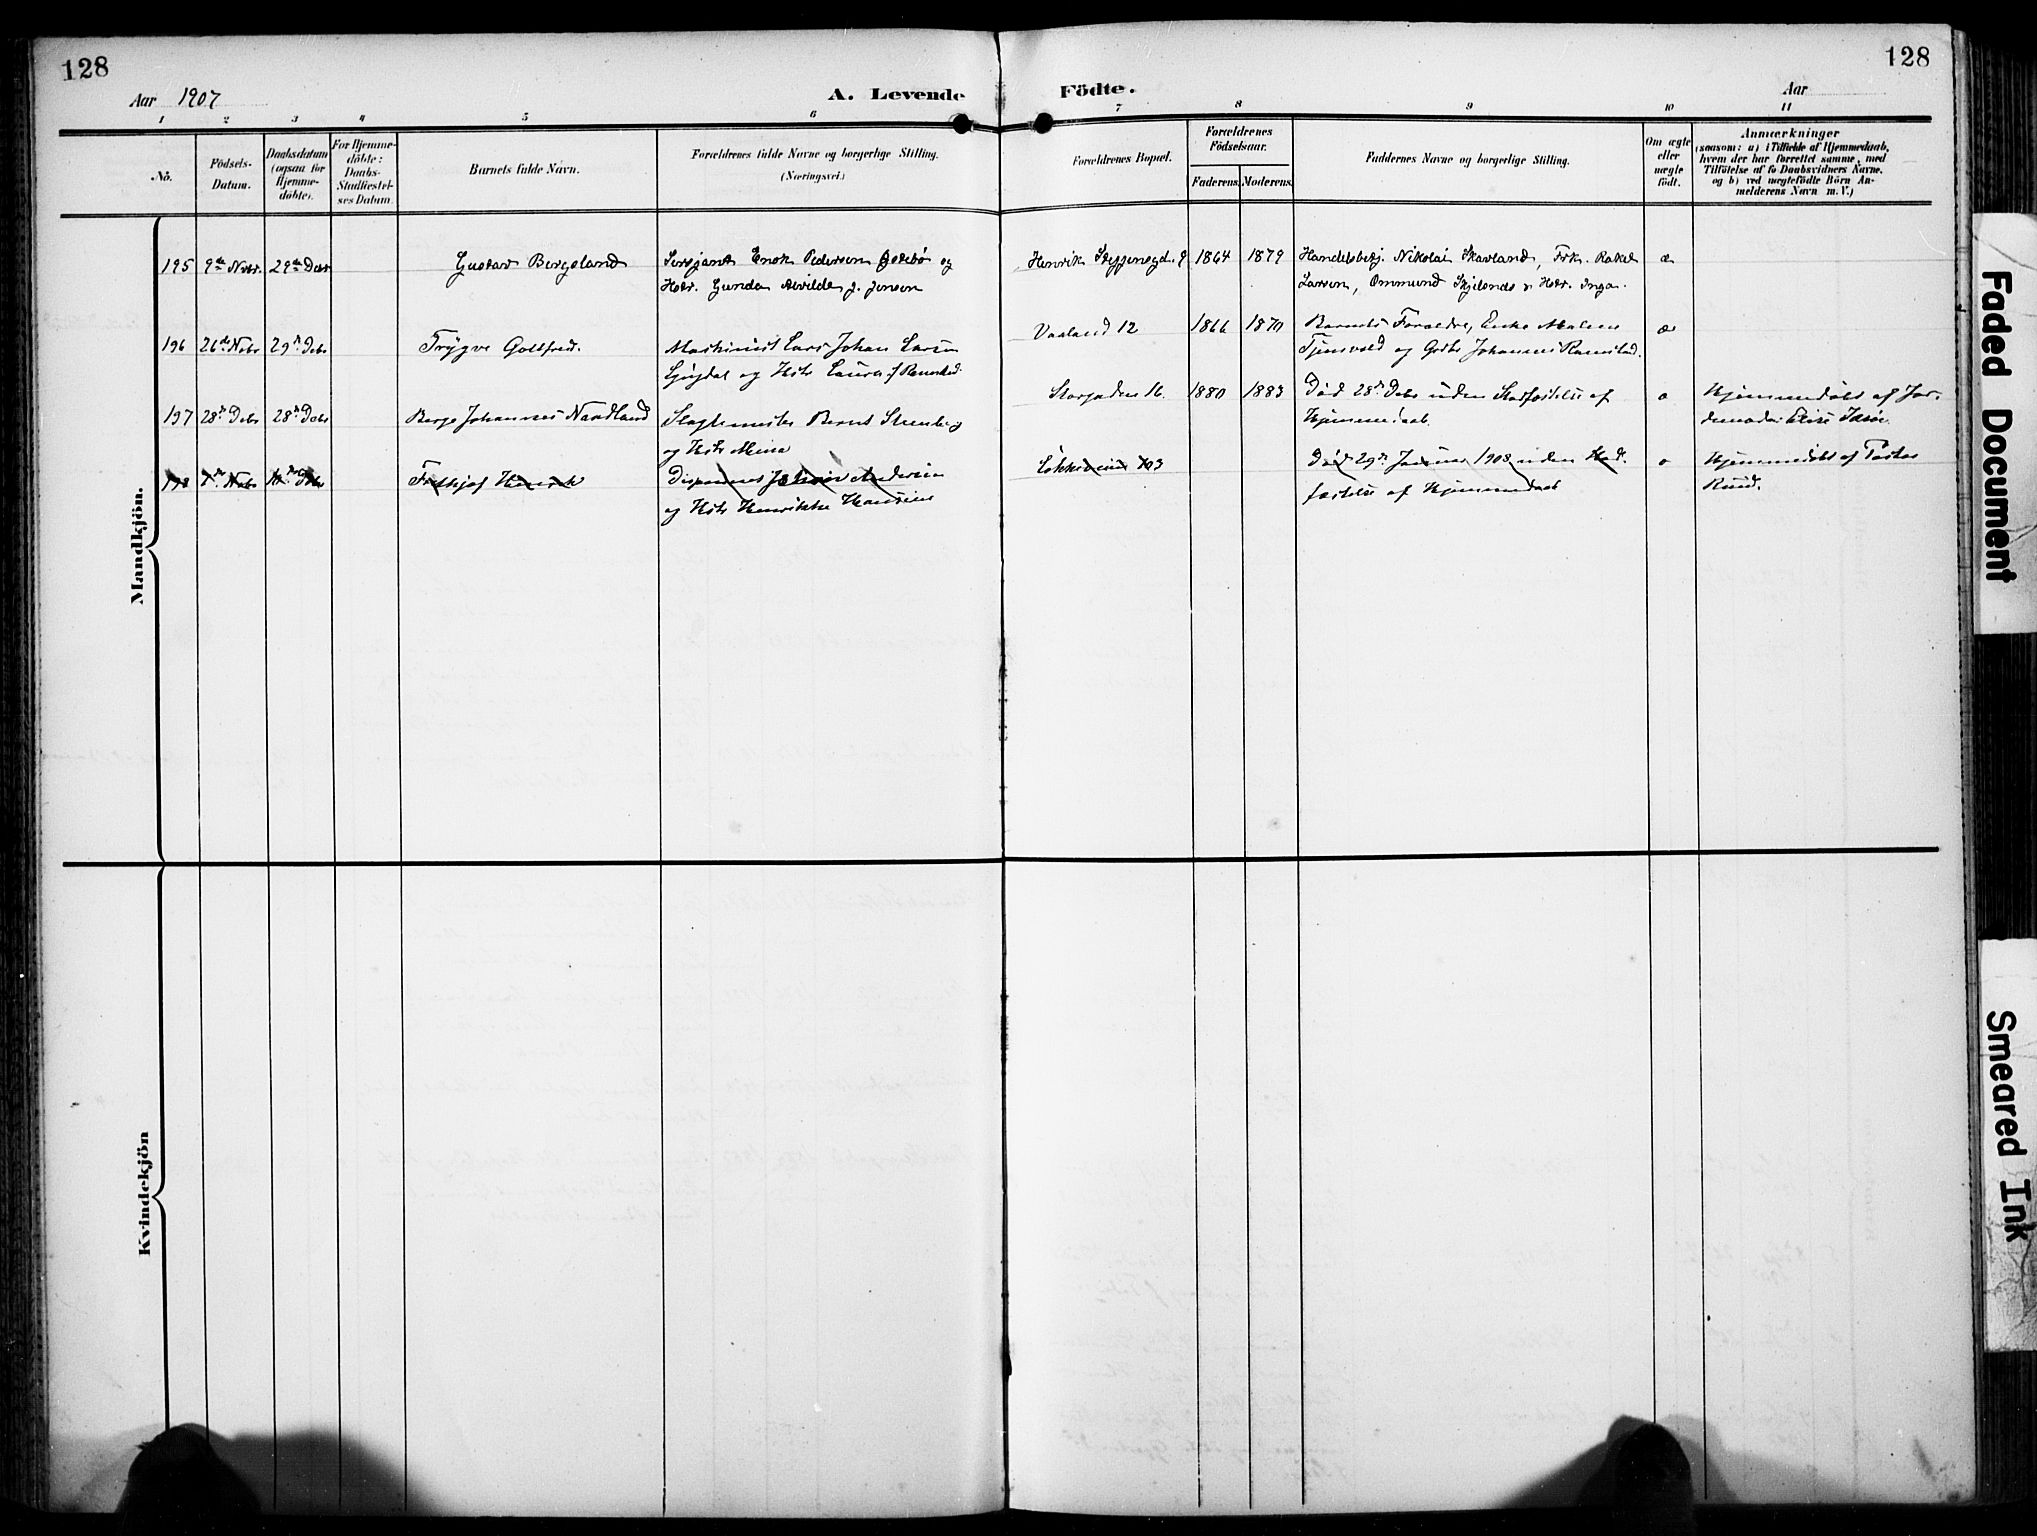 128
128
Aar 1907
A. Levende Födte.
Aar
1 2 3 4 5 6 7 8 9 10 11
No.
Födsels-
Datum.
Daabsdatum
(ogsaa for
Hjemme-
döbte).
For Hjemme-
döbte:
Daabs-
Stadfæstel-
ses Datum.
Barnets fulde Navn.
Forældrenes fulde Navne og borgerlige Stilling.
(Næringsvei.)
Forældrenes Bopæl.
Forældrenes
Födselsaar.
Faderens. Moderens.
Faddernes Navne og borgerlige Stilling.
Om ægte
eller
uægte
födt.
Anmærkninger
(saasom: a) i Tilfælde af Hjemmedaab,
hvem der har forrettet samme, med
Tilföielse af to Daabsvidners Navne,
og b) ved uægtefödte Börn An-
melderens Navn m. V.)
Mandkjön.
195 9de Novbr. 29de Debr Gustav Bergeland Sersjant Enok Pedersen og
Hstr. Gunda Alvilde f. Jensen
Henrik Steffensgd. 9 1864 1879 Handelsbetj. Nikolai Skavland, Frk. Rakel
Larsen, Ommund Skjelands & Hstr. Inga. æ
196 26de Nobr 29n Debr Trygve Gottfred. Maskinist Lars Johan Larsen
og Hstr Laura f. Ramstad.
Vaaland 12 1866 1870 Barnets Forældre, Enke Malene
Tjensvold og Gdbr Johannes Ramstad. æ
197 28n Debr 28n Debr Berge Johannes Nordland Slagtemester Bernt Stenberg
og Hstr Mina
Storgaden 16. 1880 1883 Död 28n Debr uden Stadfæstelse af
Hjemmedaab. æ Hjemmedöbt af Jor-
demoder Elise
198 Fridtjof Henrik Andersen
og Hstr Henrikke
Död 29n Januar 1908 uden Stad-
fæstelse af Hjemmedaab Hjemmedöbt af Pastor
Ruud.
Kvindekjön
Faded Document
Smeared Ink